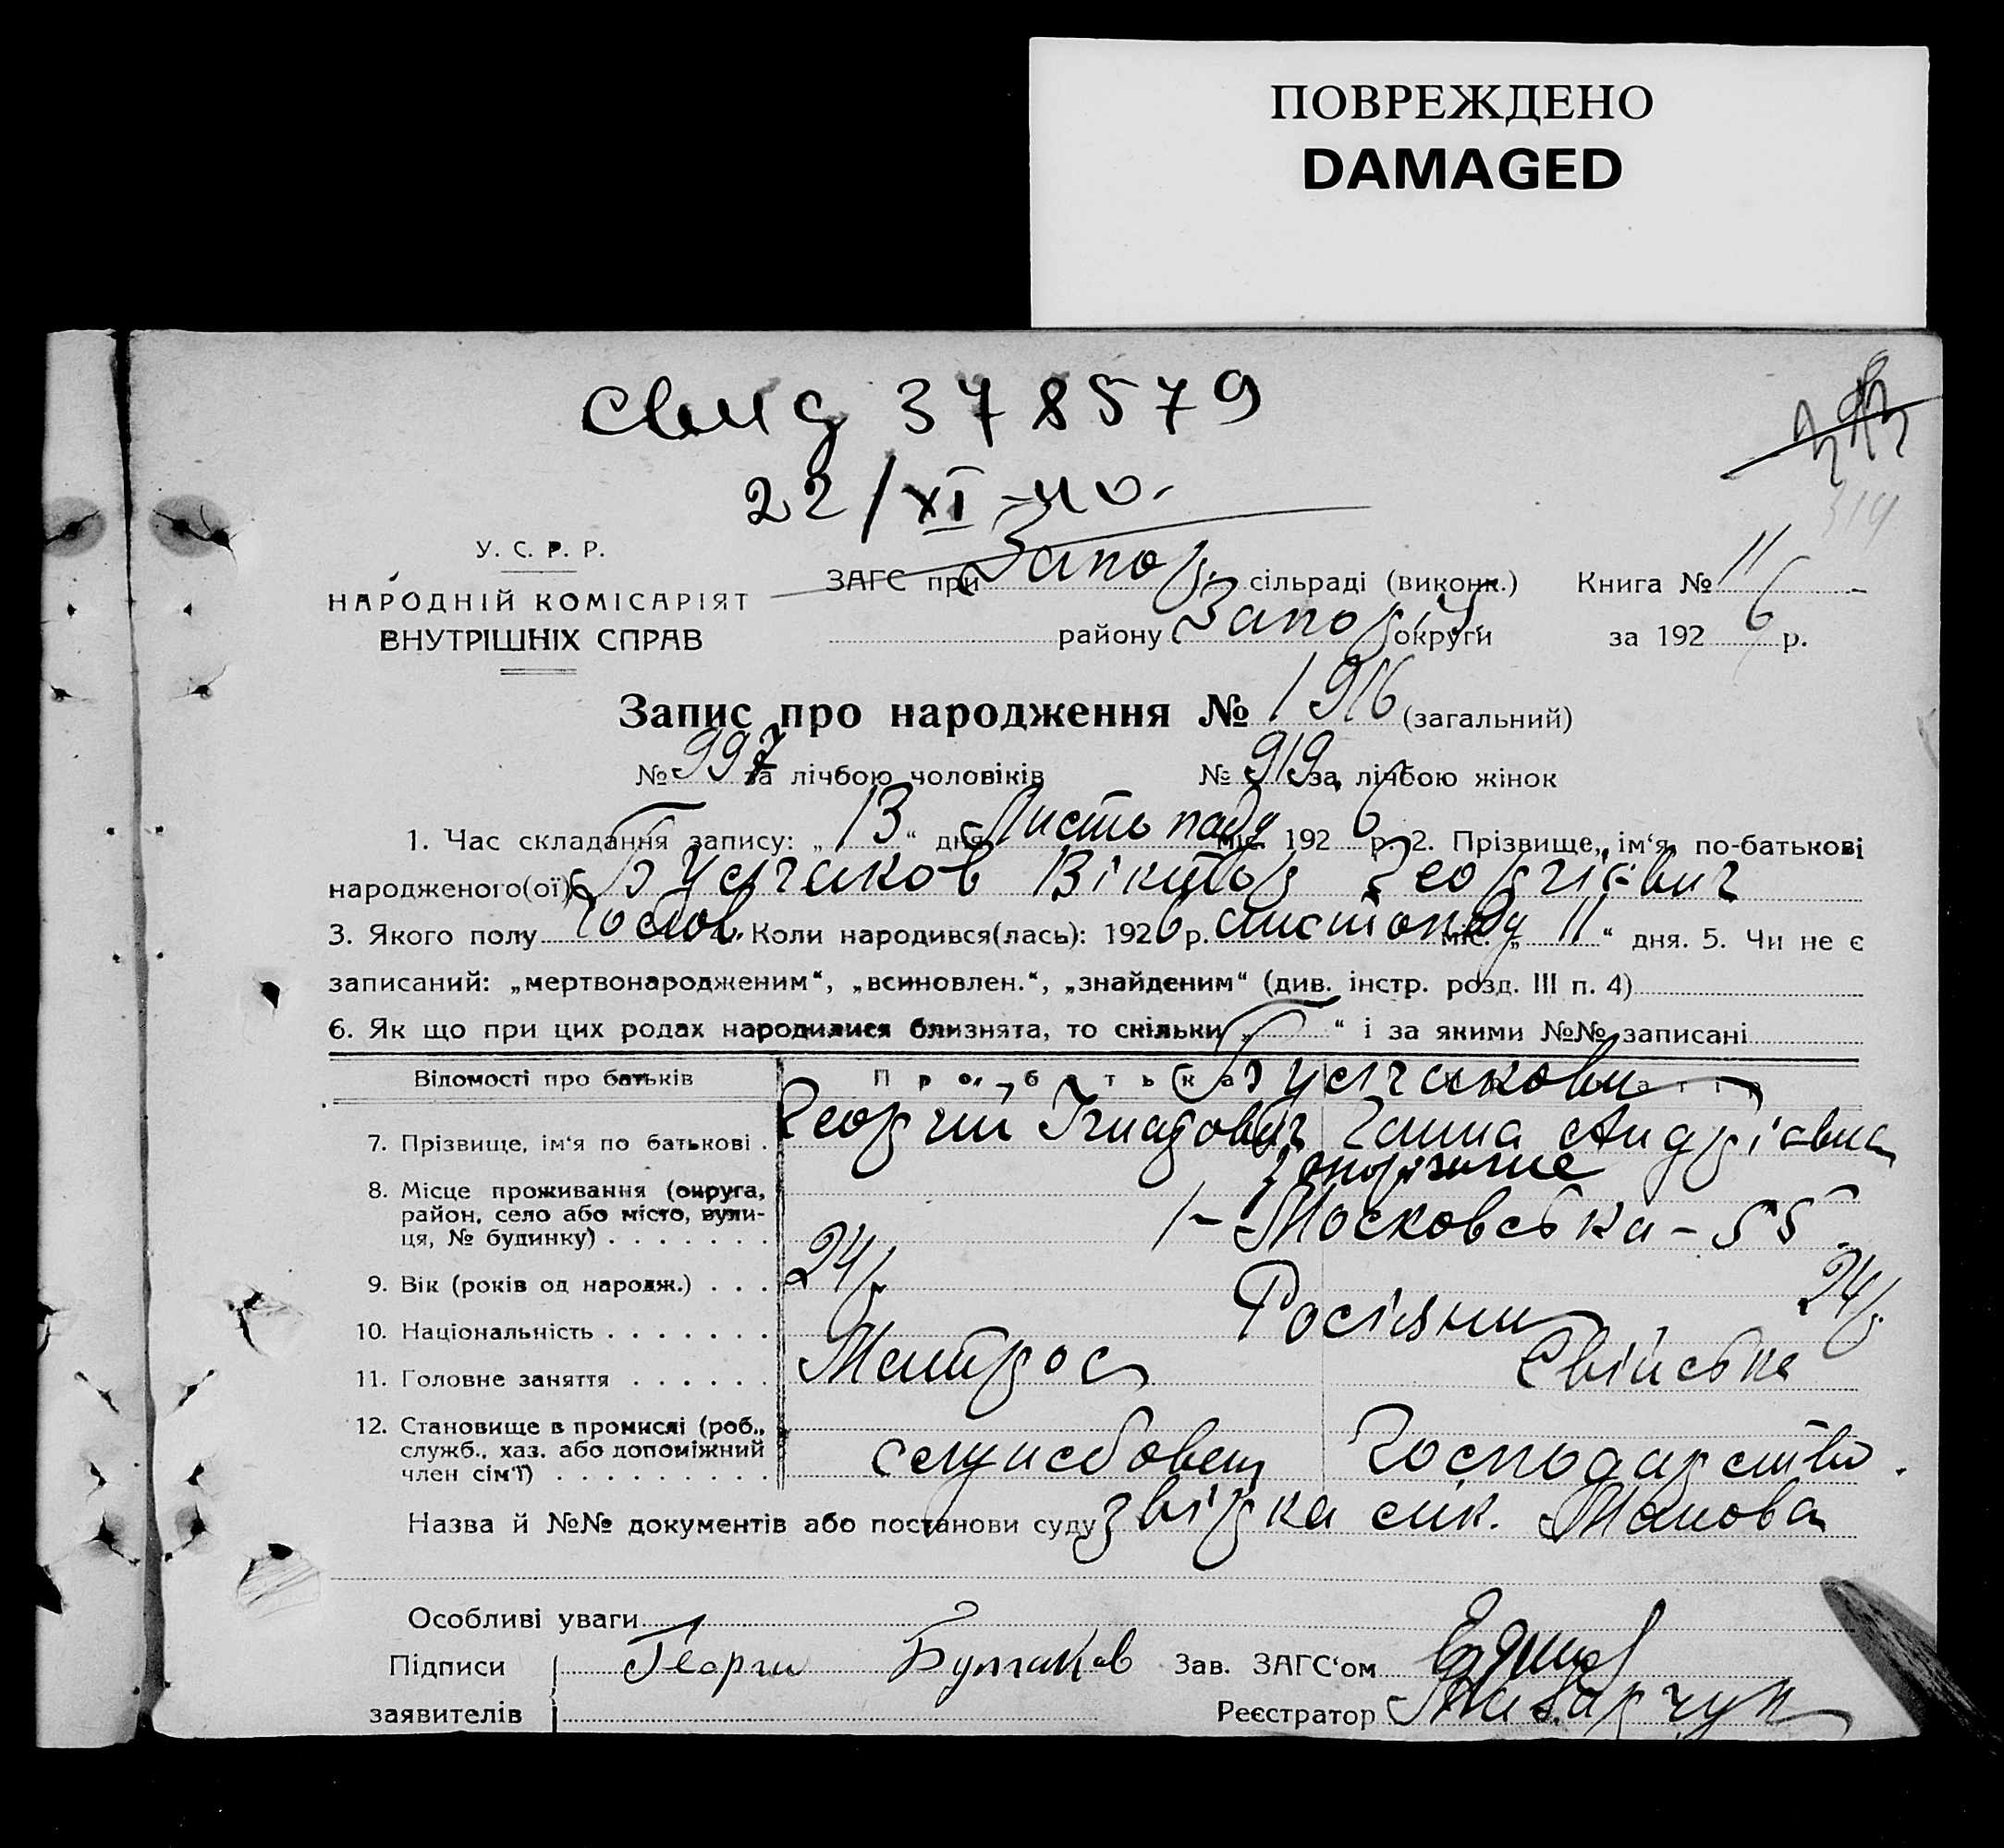 ПОВРЕЖДЕНО
DAMAGED
свид 378579
22/XI-40.
319
У. С. Р. Р.
НАРОДНІЙ КОМІСАРІЯТ
ВНУТРІШНІХ СПРАВ
ЗАГС при Запор. сільраді (виконк.) Книга № 11
району Запор. округи за 1926 р.
Запис про народження № 1916 (загальний)
№ 997 за лічбою чоловіків № 919 за лічбою жінок
1. Час складання запису: „13“ дня Листопаду міс. 1926 р. 2. Прізвище, ім'я, по-батькові
народженого(ої) Булгаков Віктор Георгієвич
3. Якого полу Чолов. Коли народився(лась): 1926 р. листопаду міс. „11“ дня. 5. Чи не є
записаний: „мертвонародженим“, „всиновлен.“, „знайденим“ (див. інстр. розд. III п. 4)
6. Як що при цих родах народилися близнята, то скільки „ “ і за якими №№ записані
Відомості про батьків Про батька Булгакови
7. Прізвище, ім'я по батькові . Георгий Ігнатович Ганна Андріівна
8. Місце проживання (округа, район, село або місто, вули- ця, № будинку) . . . . . . . Запоріжжє
1-Московська-55
9. Вік (років од народж.) . . . 24/р 24/р
10. Національність . . . . . . . Росіяни
11. Головне заняття . . . . . . Матрос Свійське
12. Становище в промислі (роб., служб., хаз. або допоміжний член сім'ї) . . . . . . . . . службовець Господарство.
Назва й №№ документів або постанови суду звірка
Особливі уваги
Підписи Георги Булгаков Зав. ЗАГС'ом
заявителів Реєстратор